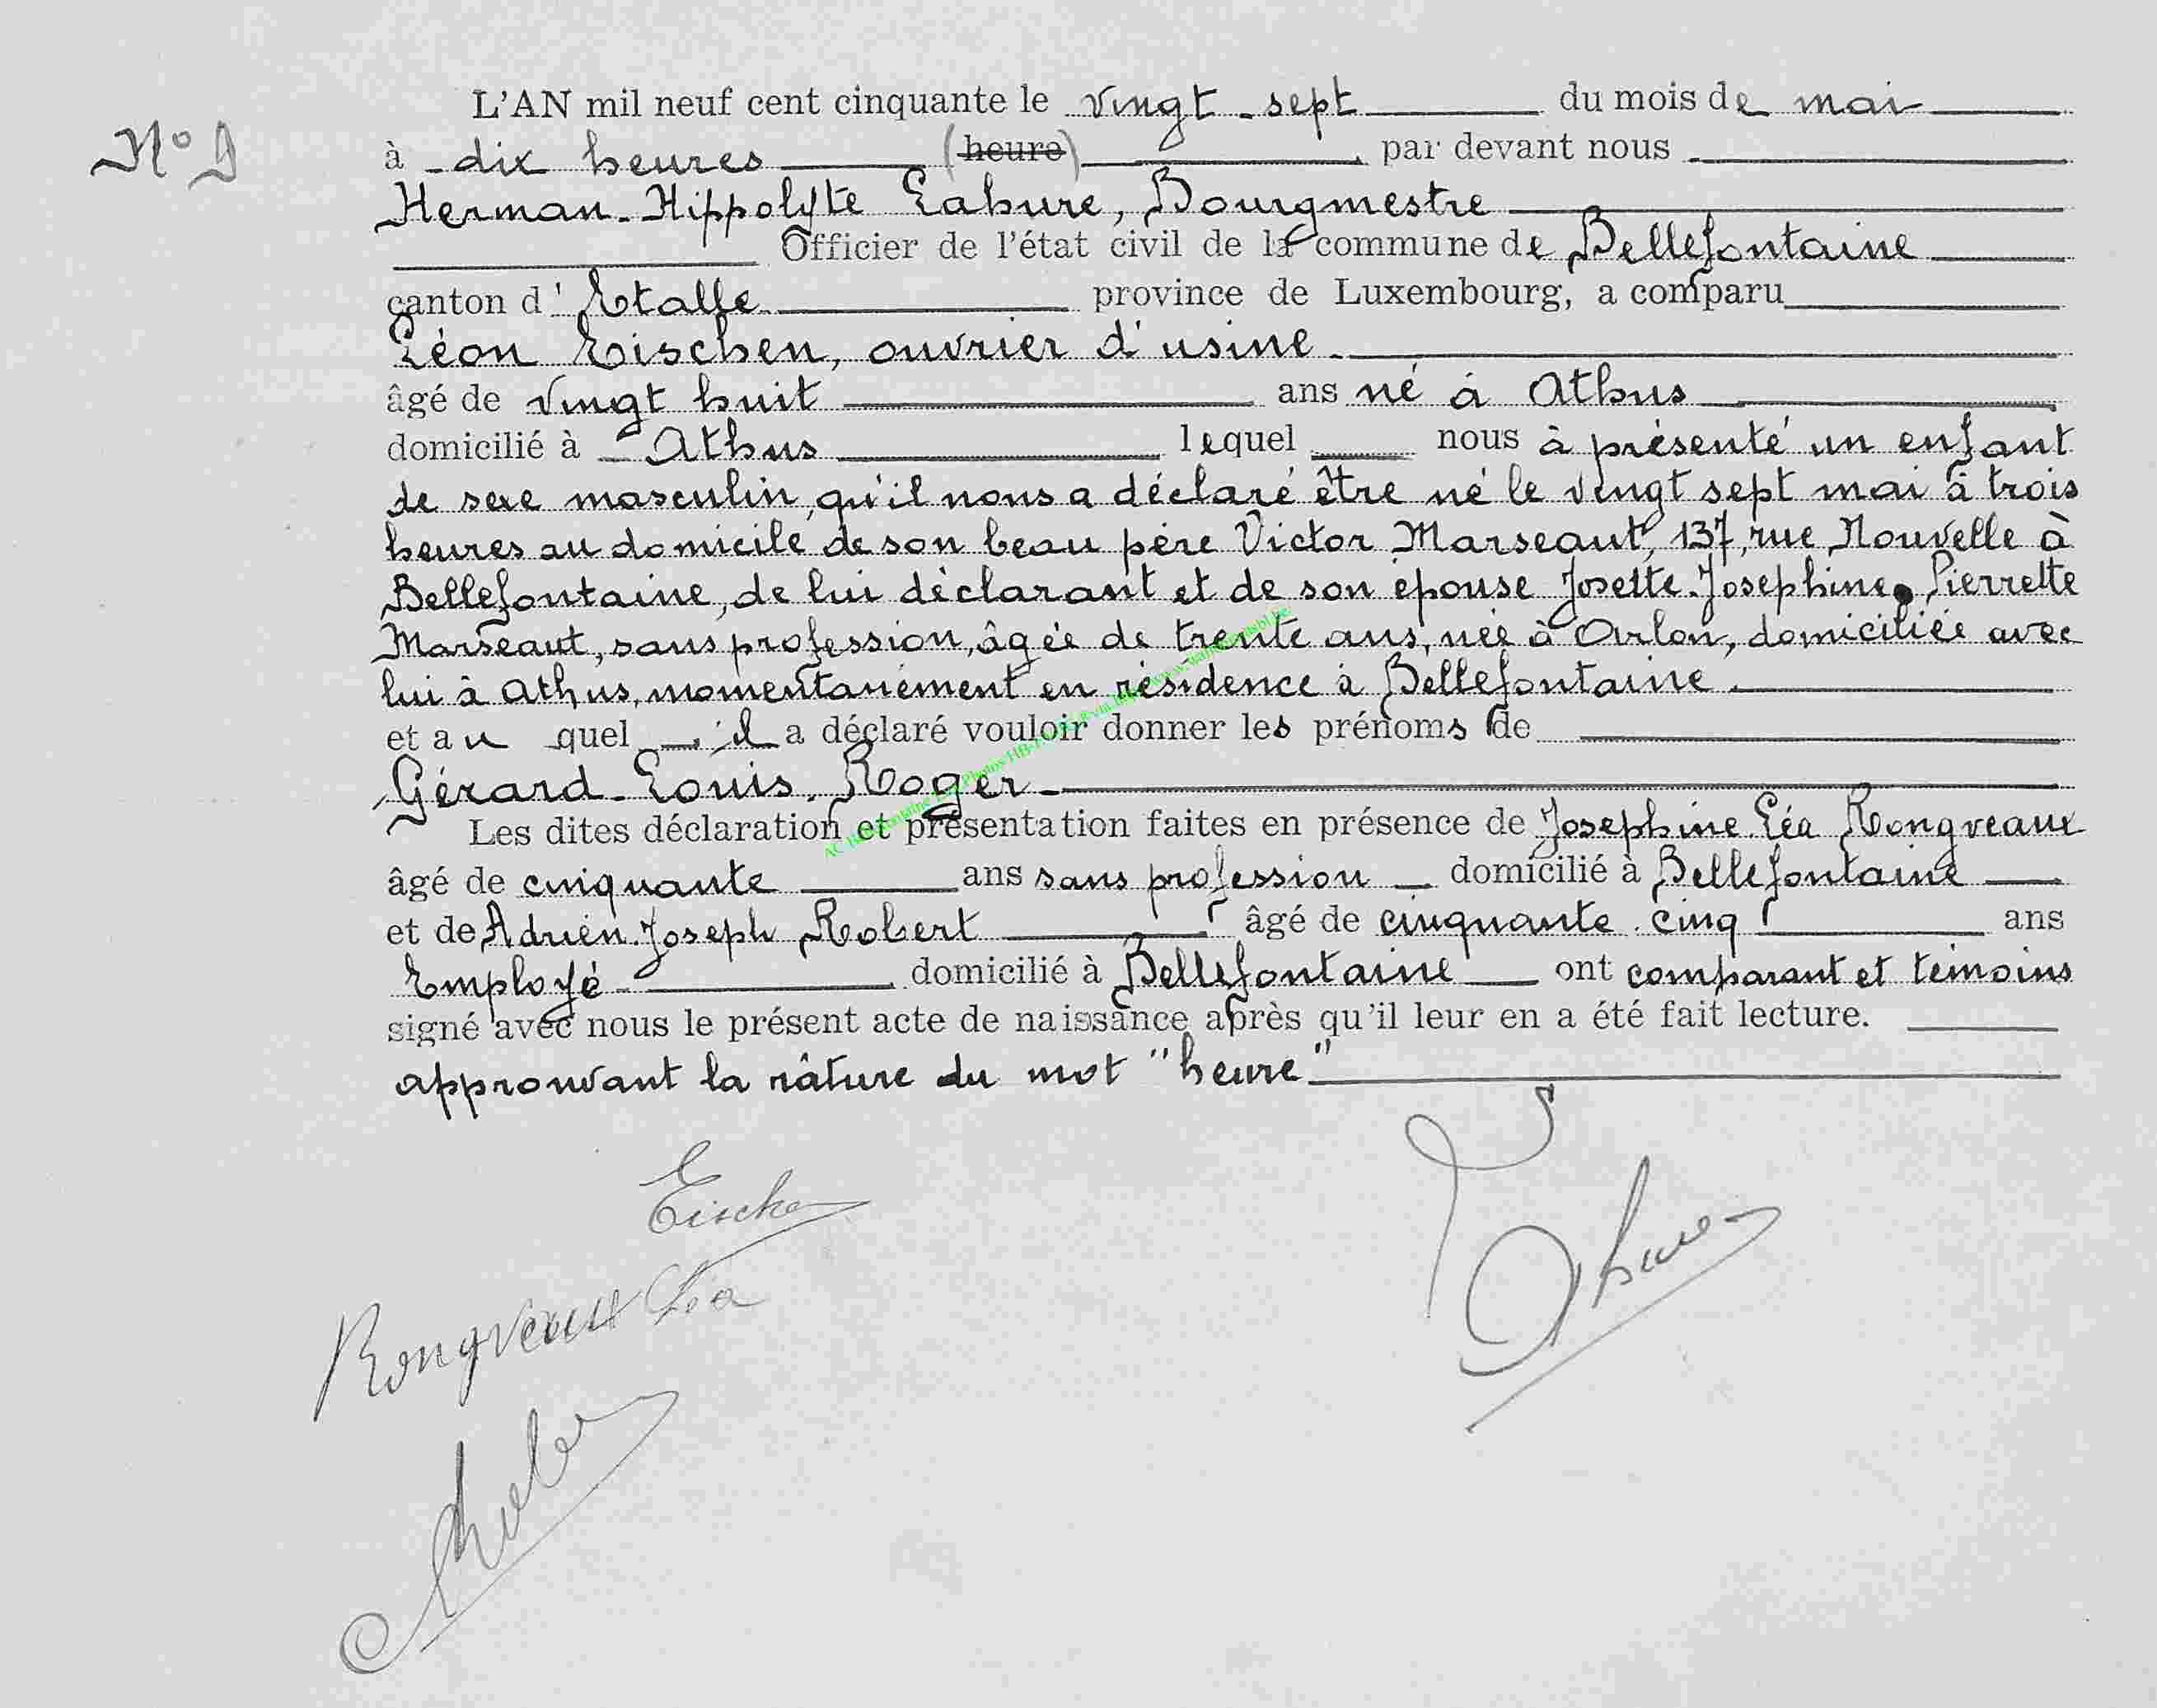 N° 9
L'AN mil neuf cent cinquante le vingt-sept du mois de mai
à dix heures (heure) par devant nous
Herman-Hippolyte Lahure, Bourgmestre
Officier de l'état civil de la commune de Bellefontaine
canton d'Etalle province de Luxembourg, a comparu
Léon Eischen, ouvrier d'usine
âgé de vingt huit ans né à Athus
domicilié à Athus lequel nous à présenté un enfant
de sexe masculin, qu'il nous a déclaré être né le vingt sept mai à trois
heures au domicile de son beau père Victor Marseaut, 137, rue Nouvelle à
Bellefontaine, de lui déclarant et de son épouse Josette-Josephine Pierrette
Marseaut, sans profession, âgée de trente ans, née à Arlon, domiciliée avec
lui à Athus, momentanément en résidence à Bellefontaine.
et au quel il a déclaré vouloir donner les prénoms de
Gérard-Louis-Roger
Les dites déclaration et présentation faites en présence de Josephine-Léa Rongveaux
âgé de cinquante ans sans profession domicilié à Bellefontaine
et de Adrien-Joseph Robert âgé de cinquante-cinq ans
Employé domicilié à Bellefontaine ont comparant et témoins
signé avec nous le présent acte de naissance après qu'il leur en a été fait lecture.
approuvant la râture du mot "heure"
Eischen
Rongveaux Léa
Robert
Lahure